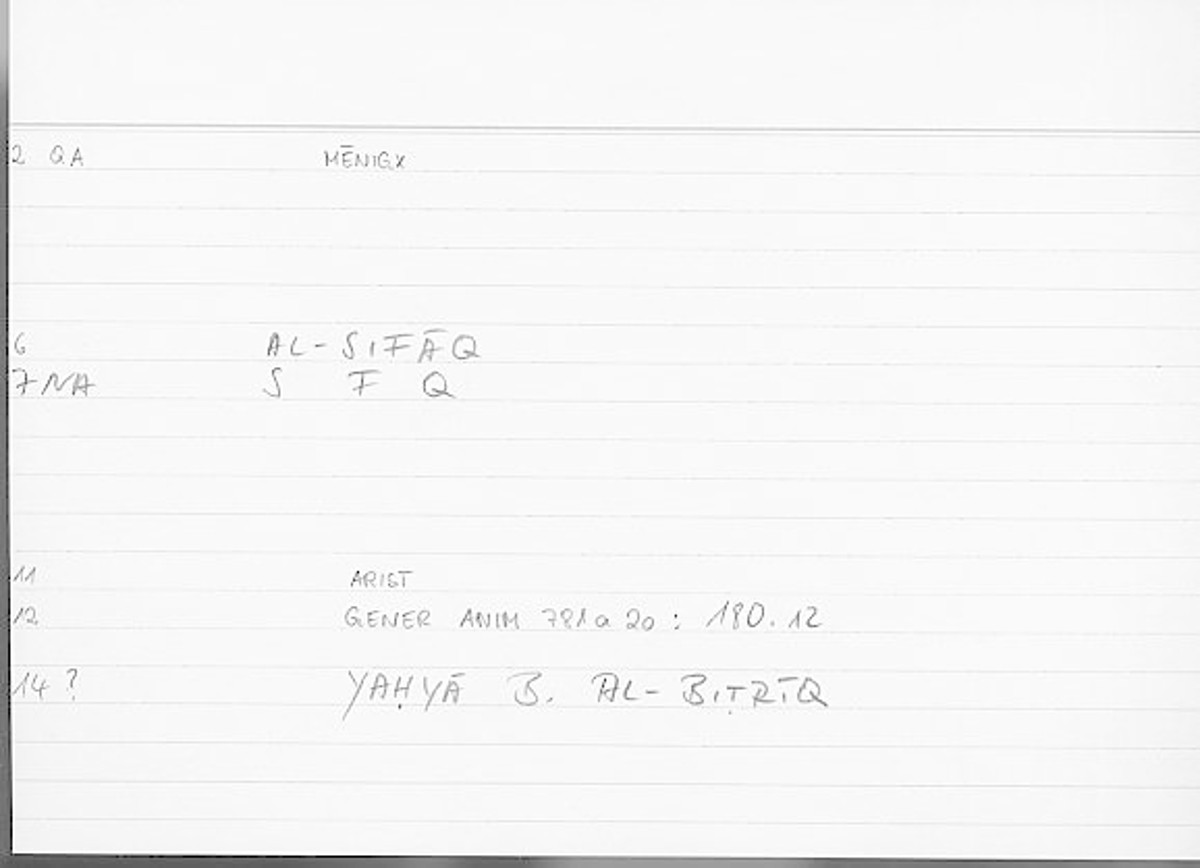 2 QA MĒNIGX
6 AL-SIFĀQ
7 NA S F Q
11 ARIST
12 GENER ANIM 781a 20 : 180.12
14 ? YAḤYĀ B. AL-BIṬRĪQ